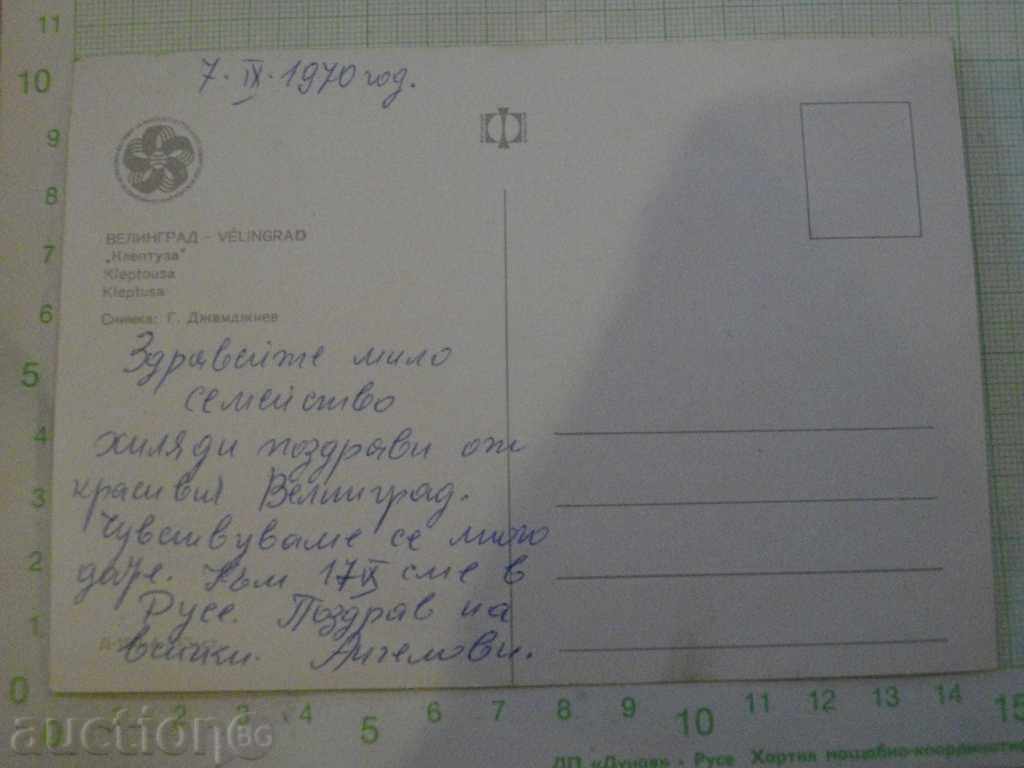 7. IX. 1970 год.
ВЕЛИНГРАД – VÉLINGRAD
„Клептуза"
Kleptousa
Kleptusa
Снимка: Г. Джамджиев
Здравейте мило
семейство
хиляди поздрави от
красивия Велинград.
Чувствуваме се много
добре. Към 17 IX сме в
Русе. Поздрав на
всички. Ангелови.
11
10
9
8
7
6
5
4
3
2
1
0
0 1 2 3 4 5 6 7 8 9 10 11 12 13 14 15
auctionBG
ДП «Дунав» • Русе Хартия мащабно-координатна